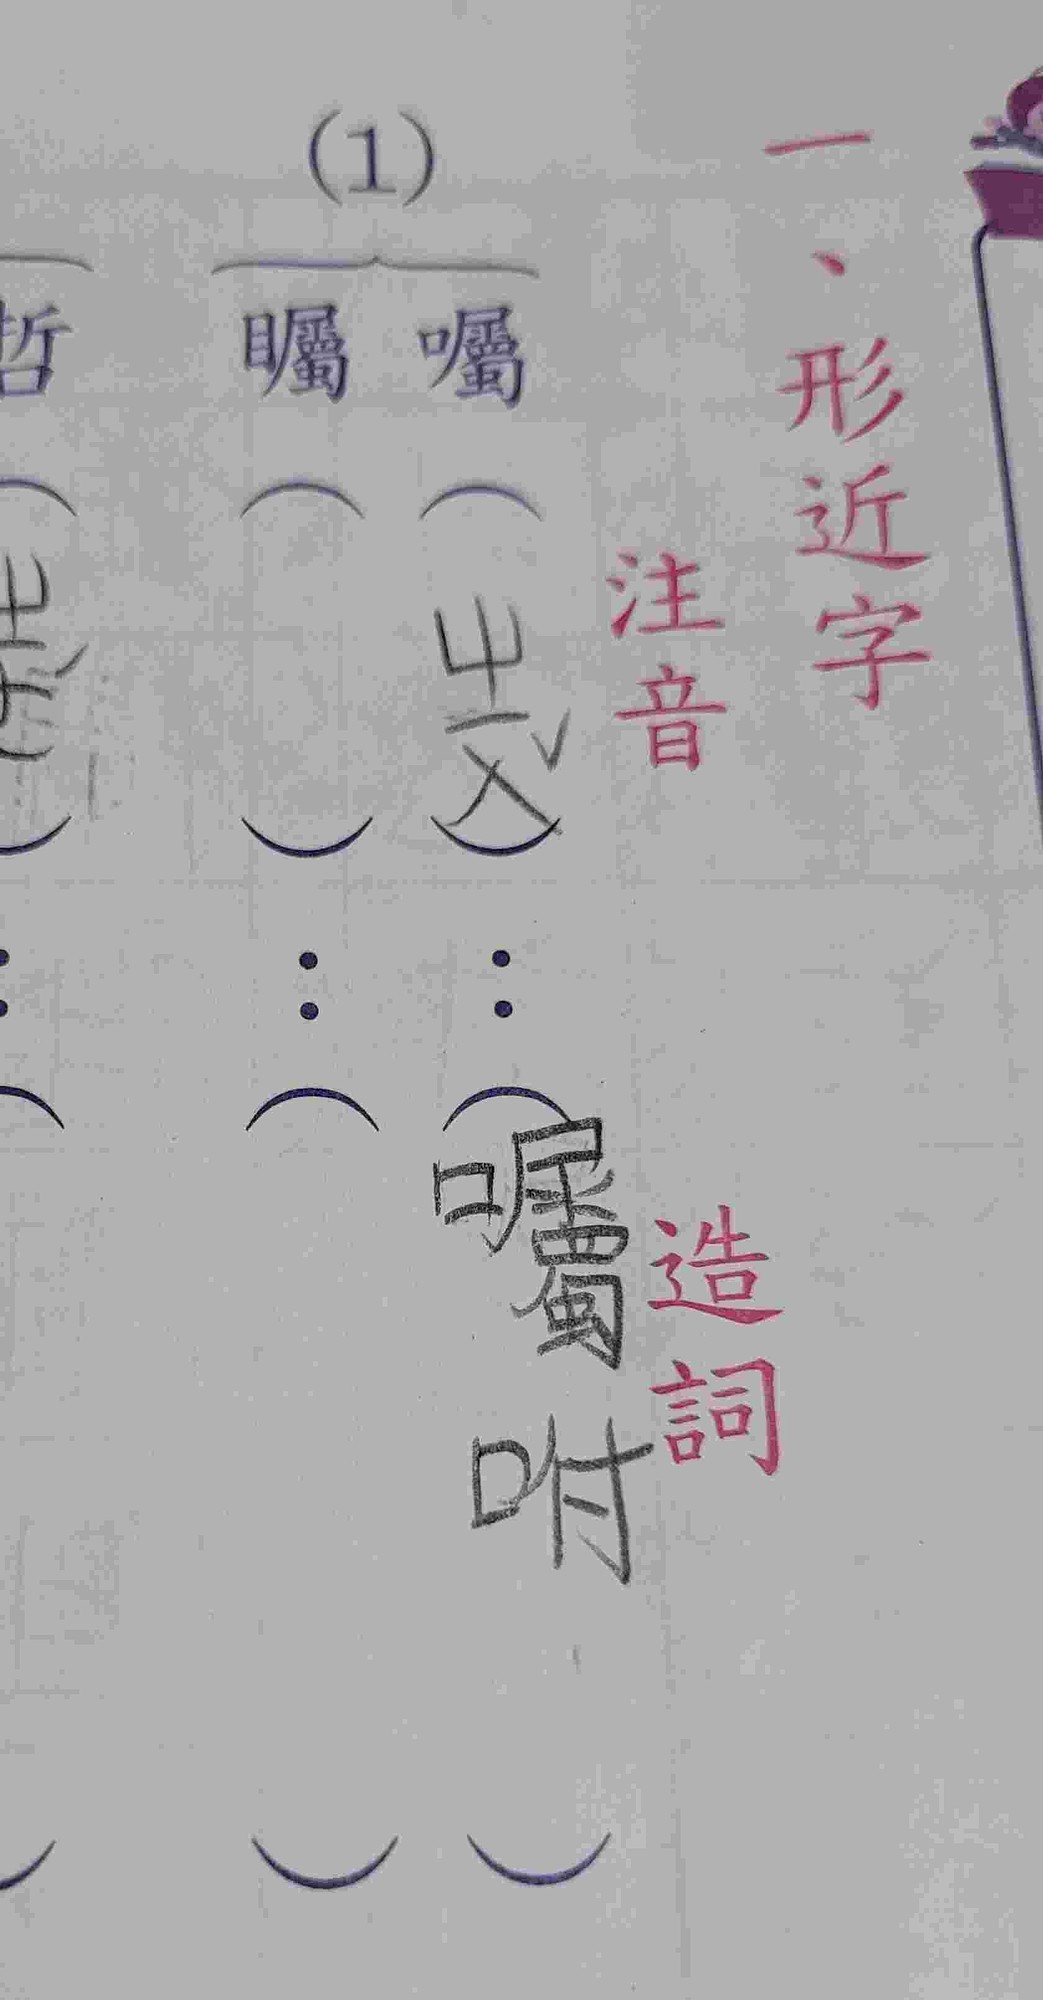 一、形近字
注音 造詞
(1)
囑(ㄓㄨˇ):(囑咐)
矚( ):( )
哲(